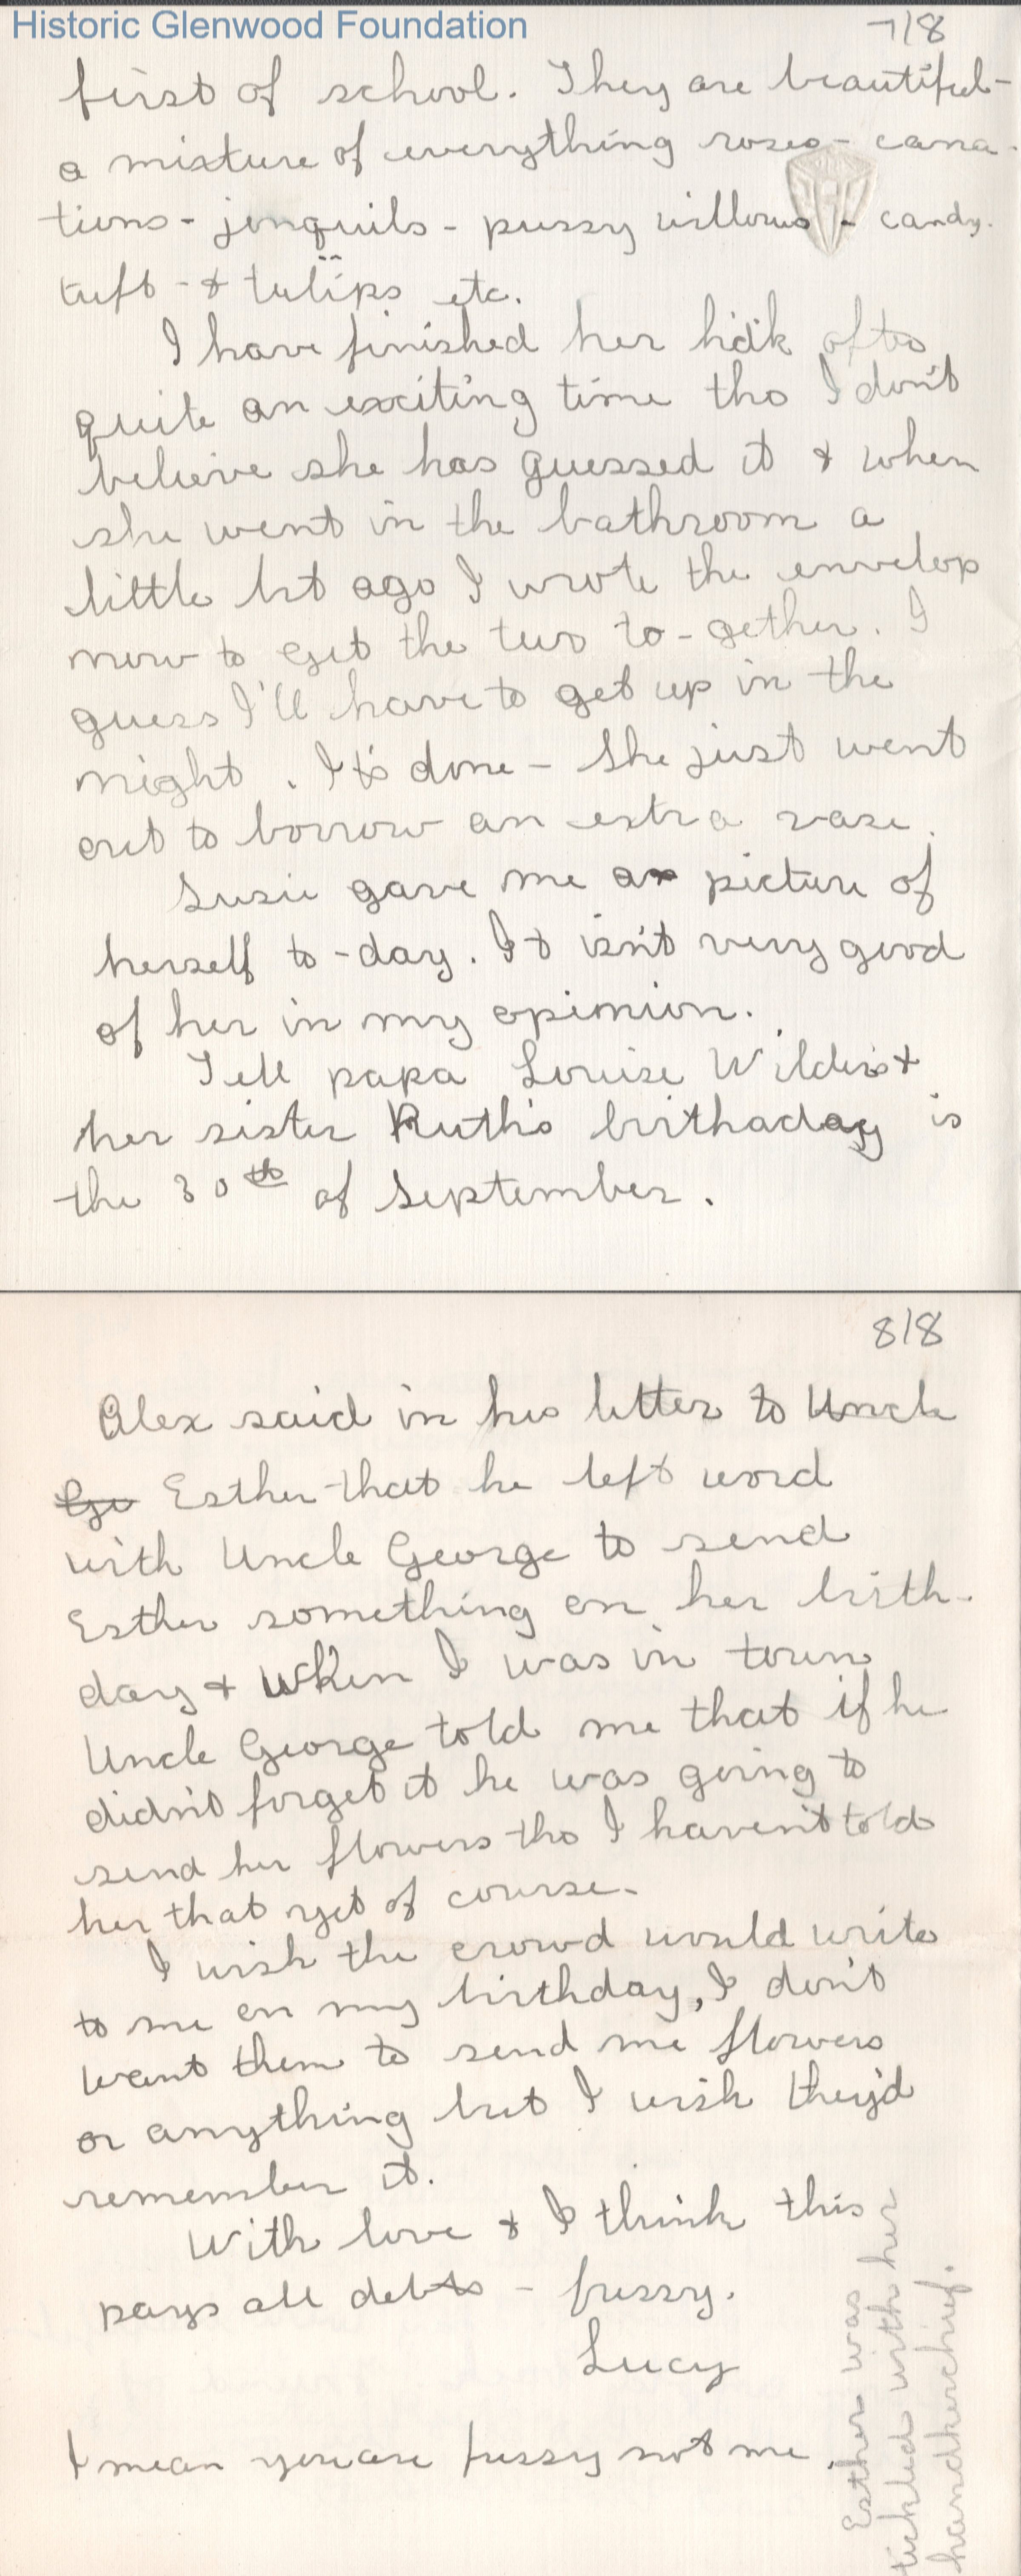 Historic Glenwood Foundation
7/8
first of school. They are beautiful-
a mixture of everything roses - carna-
tions - jonquils - pussy willows - candy.
tuft - & tulips etc.
I have finished her hd'k after
quite an exciting time tho I don't
believe she has guessed it & when
she went in the bathroom a
little bit ago I wrote the envelop
now to get the two to-gether. I
guess I'll have to get up in the
night. It's done - She just went
out to borrow an extra vase.
Susie gave me a picture of
herself to-day. It isn't very good
of her in my opinion.
Tell papa Louise Wilder's &
her sister Ruth's birthaday is
the 30th of September.
8/8
Alex said in his letter to Uncle
Ge Esther that he left word
with Uncle George to send
Esther something on her birth-
day & when I was in town
Uncle George told me that if he
didn't forget it he was going to
send her flowers tho I haven't told
her that yet of course.
I wish the crowd would write
to me on my birthday, I don't
want them to send me flowers
or anything but I wish they'd
remember it.
With love & I think this
pays all debts - fussy.
Lucy
I mean you are fussy not me.
Esther was
tickled with her
handkerchief.